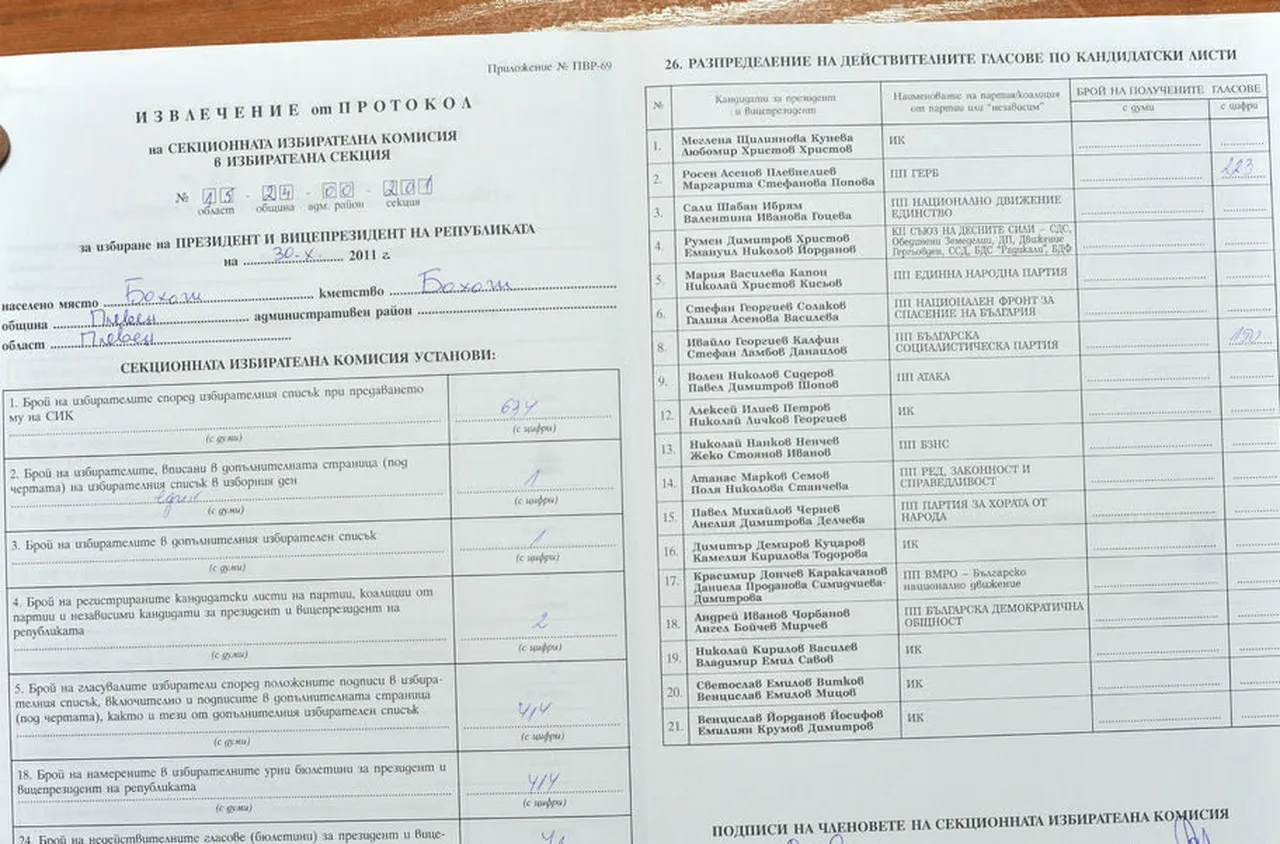 Приложение № ПВР-69
ИЗВЛЕЧЕНИЕ от ПРОТОКОЛ
на СЕКЦИОННАТА ИЗБИРАТЕЛНА КОМИСИЯ
В ИЗБИРАТЕЛНА СЕКЦИЯ
№ 15 - 24 - 00 - 201
област община адм. район секция
за избиране на ПРЕЗИДЕНТ И ВИЦЕПРЕЗИДЕНТ НА РЕПУБЛИКАТА
на 30-X 2011 г.
населено място Бохот кметство Бохот
община Плевен административен район
област Плевен
СЕКЦИОННАТА ИЗБИРАТЕЛНА КОМИСИЯ УСТАНОВИ:
1. Брой на избирателите според избирателния списък при предаването
му на СИК 674
(с думи) (с цифри)
2. Брой на избирателите, вписани в допълнителната страница (под
чертата) на избирателния списък в изборния ден 1
един
(с думи) (с цифри)
3. Брой на избирателите в допълнителния избирателен списък 1
(с думи) (с цифри)
4. Брой на регистрираните кандидатски листи на партии, коалиции от
партии и независими кандидати за президент и вицепрезидент на
републиката 2
(с думи) (с цифри)
5. Брой на гласувалите избиратели според положените подписи в избира-
телния списък, включително и подписите в допълнителната страница
(под чертата), както и тези от допълнителния избирателен списък 414
(с думи) (с цифри)
18. Брой на намерените в избирателните урни бюлетини за президент и
вицепрезидент на републиката 414
(с думи) (с цифри)
24. Брой на недействителните гласове (бюлетини) за президент и вице-
26. РАЗПРЕДЕЛЕНИЕ НА ДЕЙСТВИТЕЛНИТЕ ГЛАСОВЕ ПО КАНДИДАТСКИ ЛИСТИ
№ Кандидати за президент и вицепрезидент Наименование на партия/коалиция от партии или "независим" БРОЙ НА ПОЛУЧЕНИТЕ ГЛАСОВЕ
с думи с цифри
1. Меглена Щилиянова Кунева ИК
Любомир Христов Христов
2. Росен Асенов Плевнелиев ПП ГЕРБ 223
Маргарита Стефанова Попова
3. Сали Шабан Ибрям ПП НАЦИОНАЛНО ДВИЖЕНИЕ
Валентина Иванова Гоцева ЕДИНСТВО
4. Румен Димитров Христов КП СЪЮЗ НА ДЕСНИТЕ СИЛИ – СДС,
Емануил Николов Йорданов Обединени Земеделци, ДП, Движение
Гергьовден, ССД, БДС "Радикали", БДФ
5. Мария Василева Капон ПП ЕДИННА НАРОДНА ПАРТИЯ
Николай Христов Кисьов
6. Стефан Георгиев Солаков ПП НАЦИОНАЛЕН ФРОНТ ЗА
Галина Асенова Василева СПАСЕНИЕ НА БЪЛГАРИЯ
8. Ивайло Георгиев Калфин ПП БЪЛГАРСКА 150
Стефан Ламбов Данаилов СОЦИАЛИСТИЧЕСКА ПАРТИЯ
9. Волен Николов Сидеров ПП АТАКА
Павел Димитров Шопов
12. Алексей Илиев Петров ИК
Николай Личков Георгиев
13. Николай Нанков Ненчев ПП БЗНС
Жеко Стоянов Иванов
14. Атанас Марков Семов ПП РЕД, ЗАКОННОСТ И
Поля Николова Станчева СПРАВЕДЛИВОСТ
15. Павел Михайлов Чернев ПП ПАРТИЯ ЗА ХОРАТА ОТ
Анелия Димитрова Делчева НАРОДА
16. Димитър Демиров Куцаров ИК
Камелия Кирилова Тодорова
17. Красимир Дончев Каракачанов ПП ВМРО – Българско
Даниела Проданова Симидчиева- национално движение
Димитрова
18. Андрей Иванов Чорбанов ПП БЪЛГАРСКА ДЕМОКРАТИЧНА
Ангел Бойчев Мирчев ОБЩНОСТ
19. Николай Кирилов Василев ИК
Владимир Емил Савов
20. Светослав Емилов Витков ИК
Венцислав Емилов Мицов
21. Венцислав Йорданов Йосифов ИК
Емилиян Крумов Димитров
ПОДПИСИ НА ЧЛЕНОВЕТЕ НА СЕКЦИОННАТА ИЗБИРАТЕЛНА КОМИСИЯ